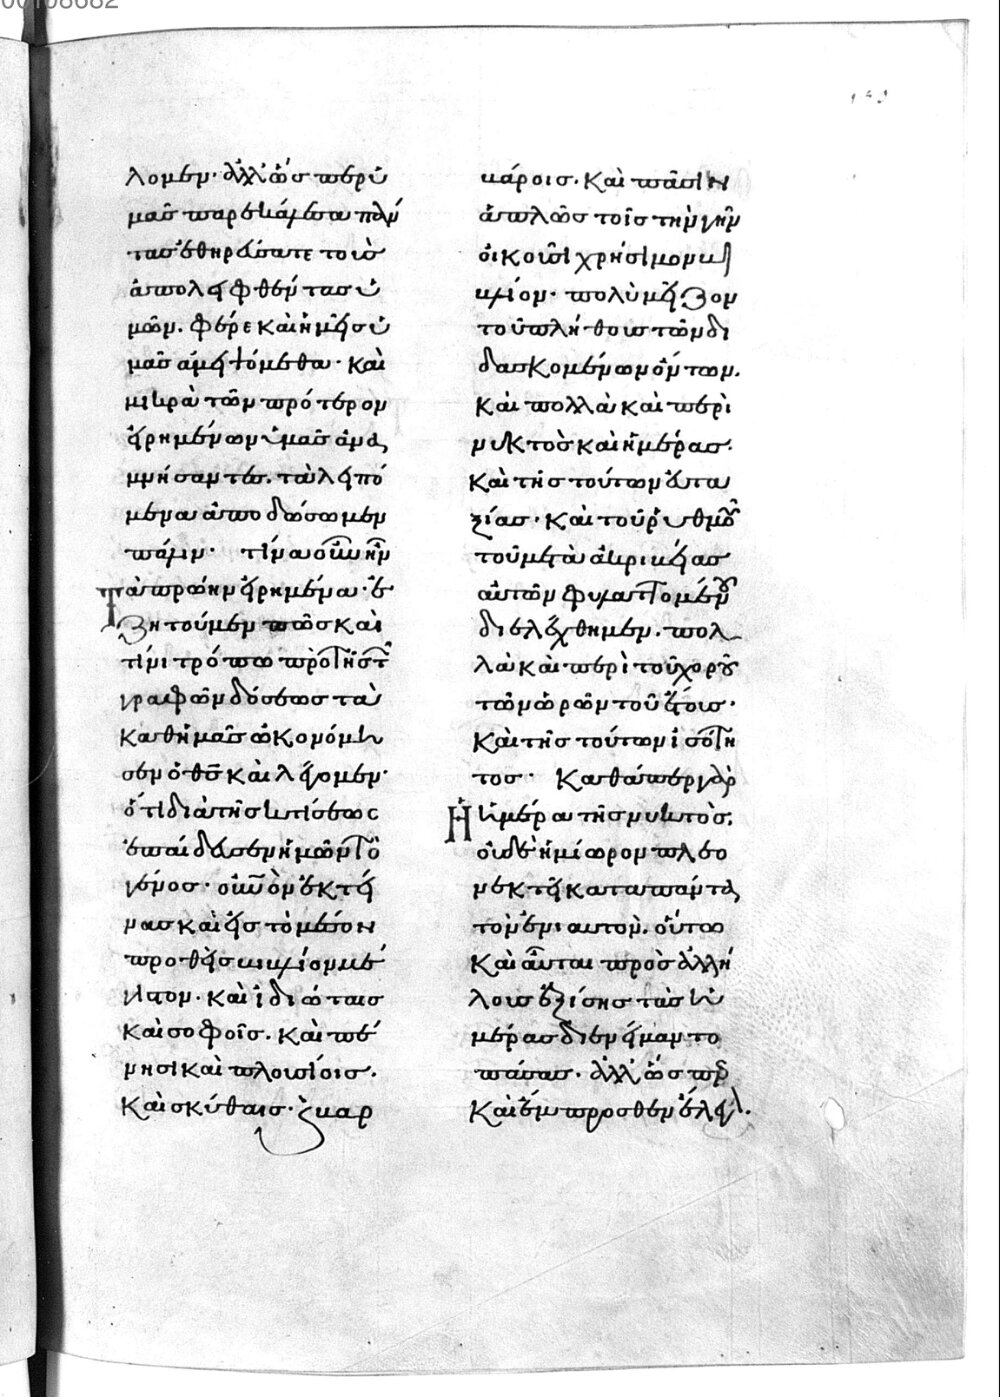 00108682
λομεν· ἀλλ' ὥσπερ ὑ
μᾶς παρεκάλεσα πάν
τας ἐθηράσατε τοὺς
ἀπολειφθέντας ὑ
μῶν. φέρε καὶ ἡμεῖς ὑ
μᾶς ἀμειψόμεθα· καὶ
μικρὰ τῶν πρότερον
εἰρημένων ὑμᾶς ἀνα
μνήσαντες. τὰ λειπό
μενα ἀποδώσωμεν
πάλιν· τίνα οὖν ἦν
τὰ πρώην εἰρημένα· ἐ
ζητοῦμεν πῶς καὶ
τίνι τρόπω πρὸ τῆς τῶν
γραφῶν δόσεως τὰ
καθ' ἡμᾶς ὠκονόμη
σεν ὁ θς καὶ λέγομεν·
ὅτι διὰ τῆς κτίσεως
ἐπαίδευσεν ἡμῶν τὸ
γένος· οὐνὸν ἐκτεί
νας καὶ εἰς τὸ μέσον
προθεὶς βιβλίον μέ
γιστον. καὶ ἰδιώταις
καὶ σοφοῖς. καὶ πέ
νησι καὶ πλουσίοις.
καὶ σκύθαις· καὶ βαρ
βάροις. καὶ πᾶσιν
ἁπλῶς τοῖς τὴν γῆν
οἰκοῦσι χρήσιμον βι
βλίον· πολὺ μεῖζον
τοῦ πλήθους τῶν δι
δασκομένων ὄντων.
καὶ πολλὰ καὶ περὶ
νυκτὸς καὶ ἡμέρας.
καὶ τῆς τούτων εὐτα
ξίας· καὶ τοῦ ῥυθμοῦ
τοῦ μετὰ ἀκριβείας
αὐτῶν φυλαττομένου
διελέχθημεν. πολ
λὰ καὶ περὶ τοῦ χοροῦ
τῶν ὡρῶν τοῦ ἔτους·
καὶ τῆς τούτων ἰσότη
τος· καθάπερ γὰρ
ἡ ἡμέρα τῆς νυκτὸς.
οὐδὲ ἡμίωρον πλεο
νεκτεῖ κατὰ πάντα
τὸν ἐνιαυτὸν. οὕτω
καὶ αὗται πρὸς ἀλλή
λους ἐξίσης τὰς ἡ
μέρας διενείμαντο
πάσας. ἀλλ' ὥσπερ
καὶ ἔμπροσθεν ἔλεγον.